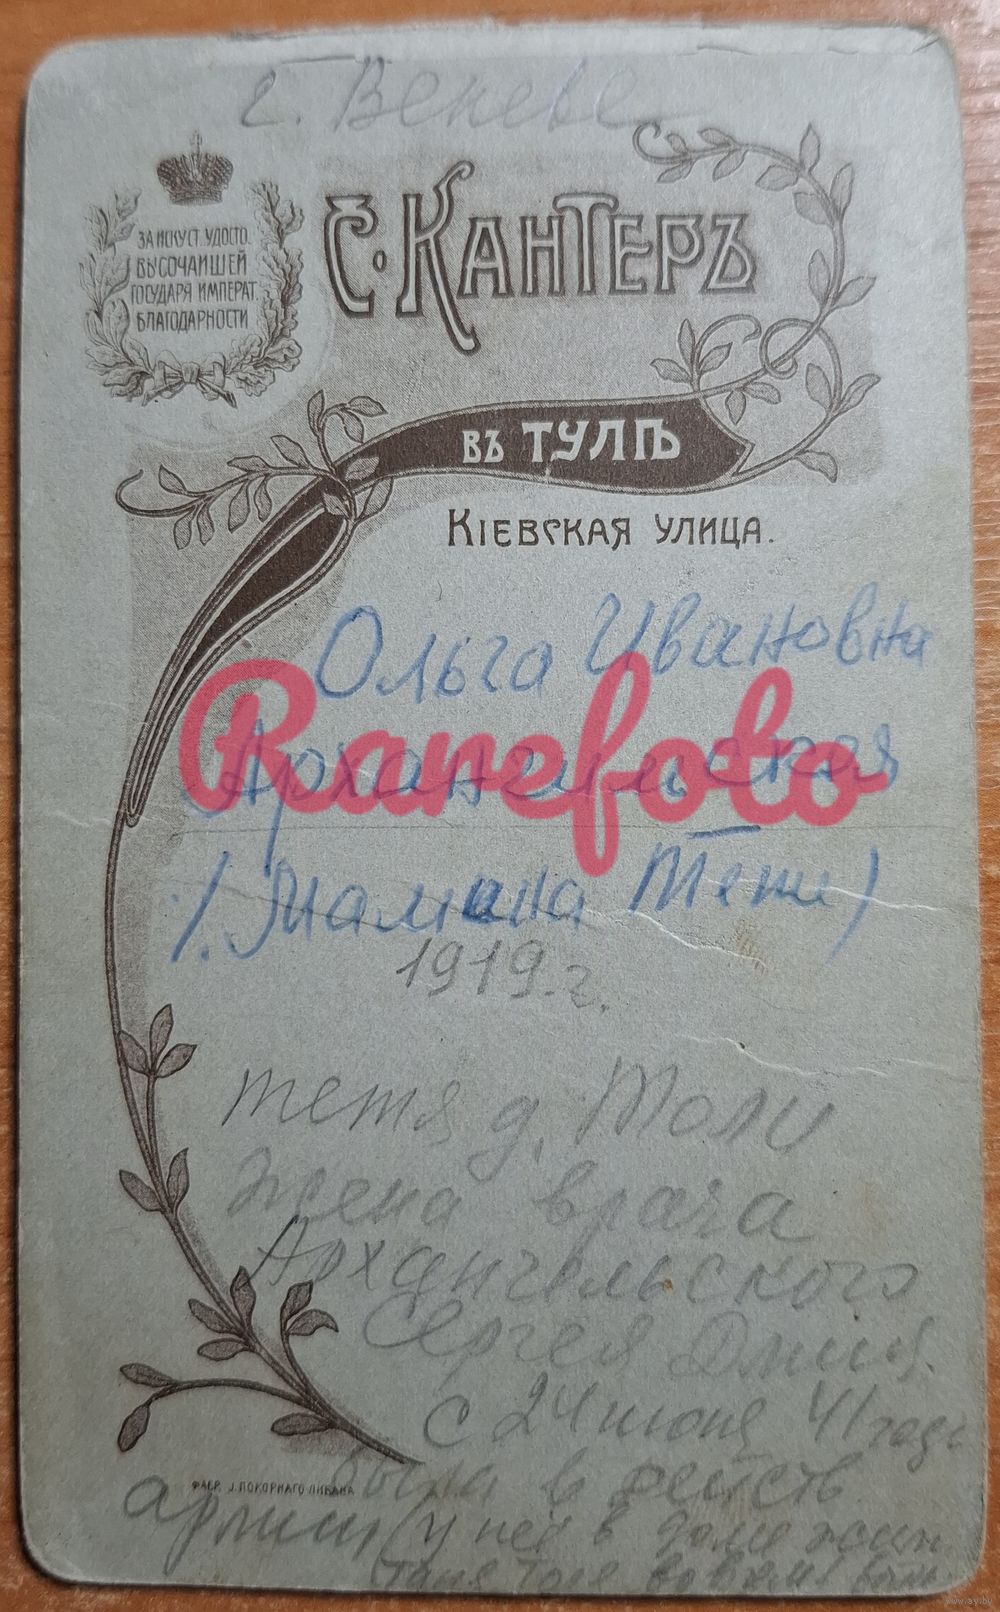 г. Веневе
ЗА ИСКУСТ. УДОСТО.
ВЫСОЧАЙШЕЙ
ГОСУДАРЯ ИМПЕРАТ.
БЛАГОДАРНОСТИ
С. КАНТЕРЪ
ВЪ ТУЛѢ
КІЕВСКАЯ УЛИЦА.
Ольга Ивановна
Архангельская
Ranefoto
(Мамина Тётя)
1919. г.
тетя д. Толи
Жена врача
Архангельского
Сергея Дмит.
с 24 июня 41 года
была в действ.
ФАБР. І. ПОКОРНАГО ЛИБАВА
армии (у неё в доме жили
www.ay.by